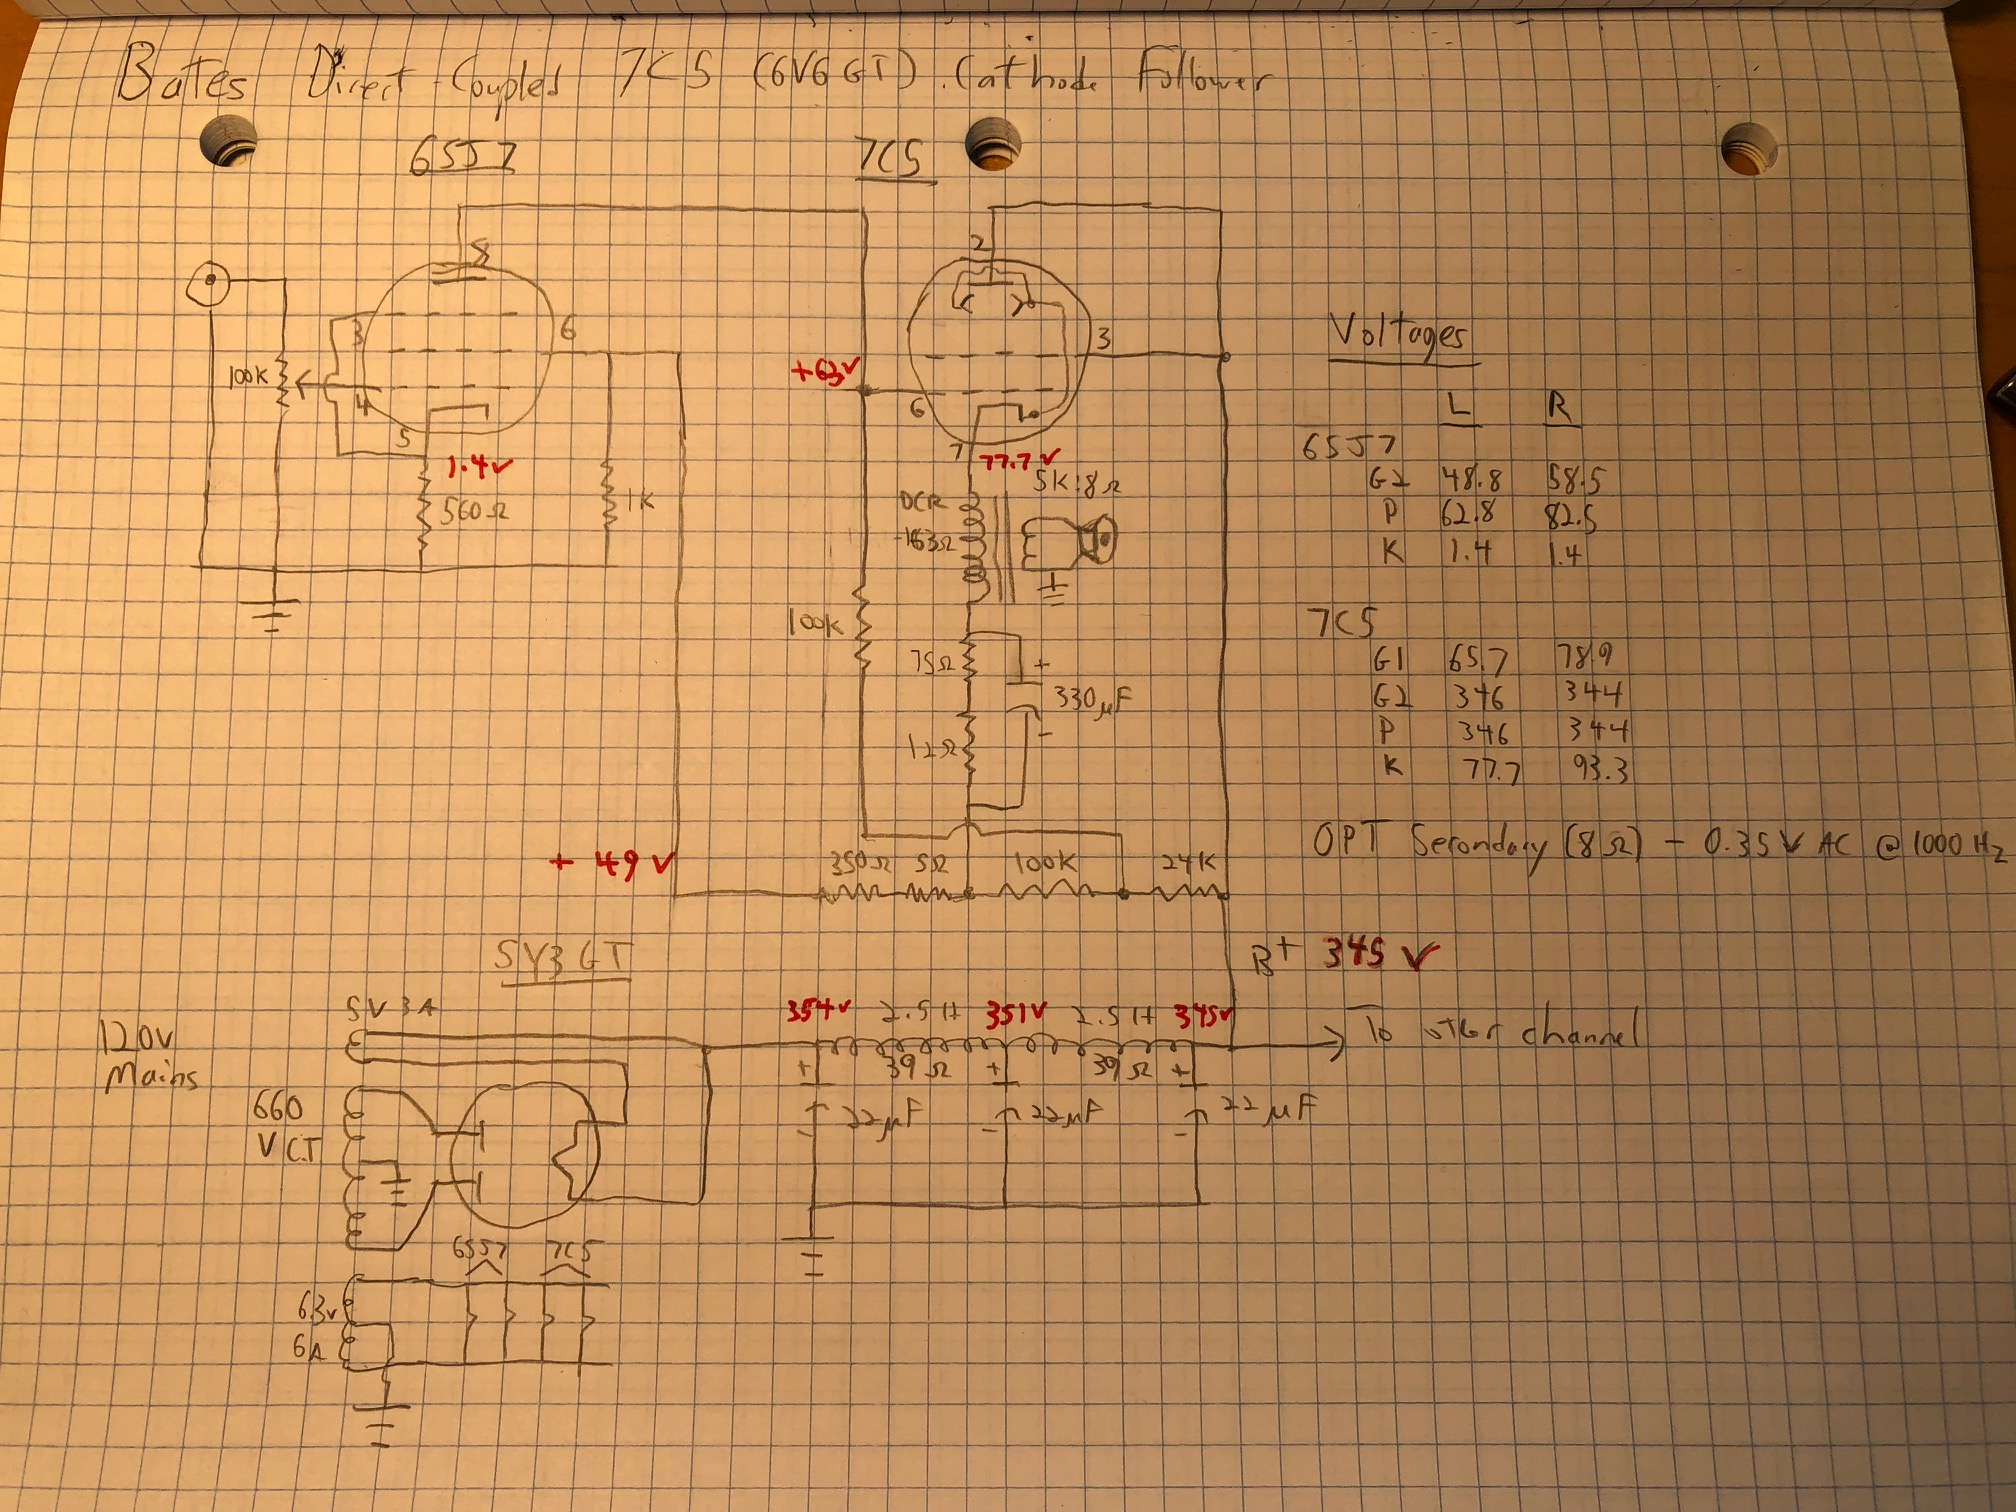 Bates Direct-Coupled 7C5 (6V6GT) Cathode Follower
6SJ7
7C5
8
3
6
4
5
100K
1.4V
560Ω
1K
2
3
+63V
6
7
77.7V
5K:8Ω
DCR
163Ω
100K
75Ω
+
330μF
-
12Ω
+ 49V
350Ω 5Ω 100K 24K
Voltages
L R
6SJ7
G2 48.8 58.5
P 62.8 82.5
K 1.4 1.4
7C5
G1 65.7 78.9
G2 346 344
P 346 344
K 77.7 93.3
OPT Secondary (8Ω) - 0.35V AC @ 1000 Hz
B+ 345 V
5Y3GT
5V 3A
120V
Mains
354V 2.5H 351V 2.5H 345V
To other channel
+ 39Ω + 39Ω +
22μF 22μF 22μF
- - -
660
VCT
6SJ7 7C5
6.3V
6A